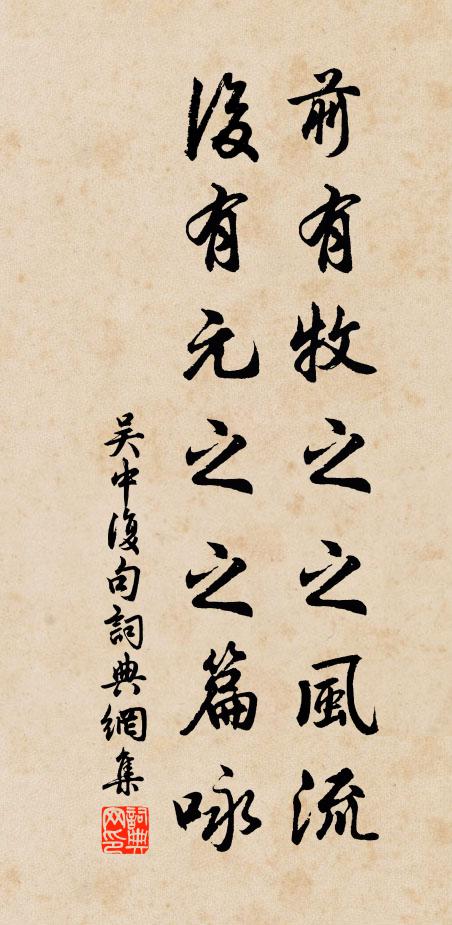 前有牧之之風流
後有元之之篇咏
吴中復句詞典網集
詞典网印